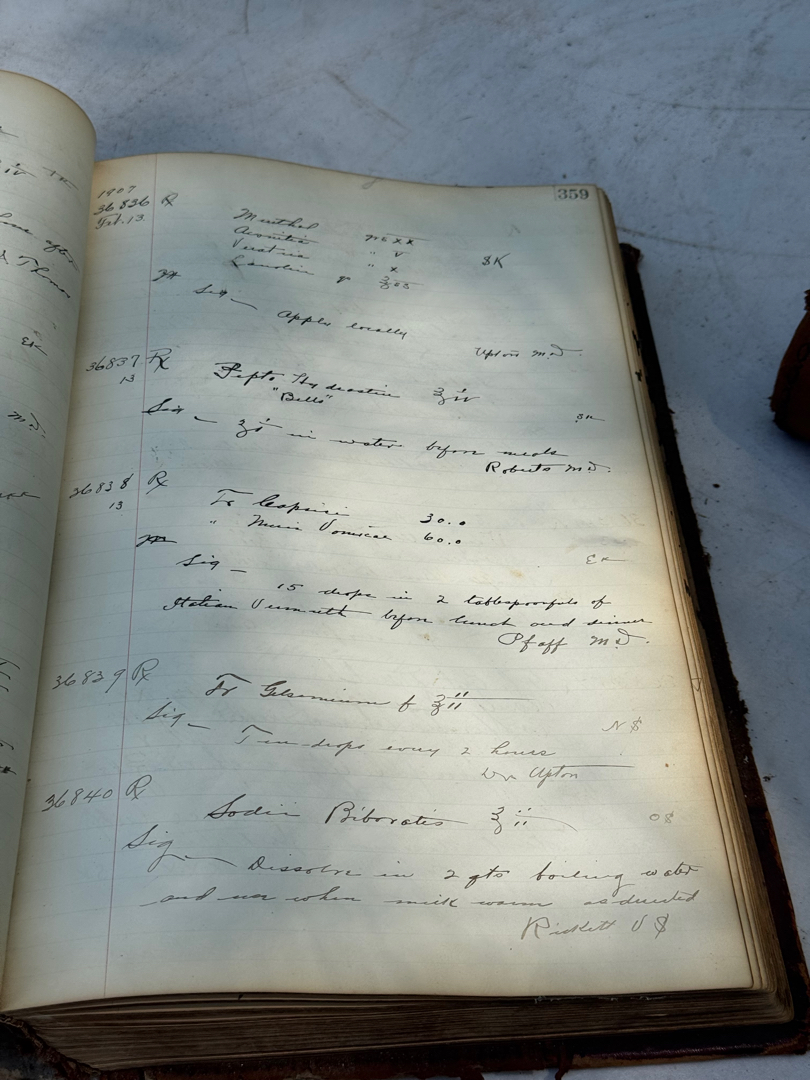 359
1907
36836 Rx
Feb. 13
Menthol grs xx
Aconitia " v
Veratria " x
Lanolin ℥
SK
Sig —
Apply locally
Upton M.D.
36837 Rx
13
Pepto Hydrastin ℥iv
"Bells"
SK
Sig — ʒi in water before meals
Roberts M.D.
36838 Rx
13
Tr Capsici 30.0
" Nucis Vomicae 60.0
Ex
Sig —
15 drops in 2 tablespoonfuls of
Italian Vermouth before lunch and dinner
Pfaff M.D.
36839 Rx
Tr Gelsemium f ʒii
N$
Sig — Ten drops every 2 hours
Dr Upton
36840 Rx
Sodii Biboratis ℥ii
O$
Sig — Dissolve in 2 qts boiling water
and use when milk warm as directed
Rickett V$